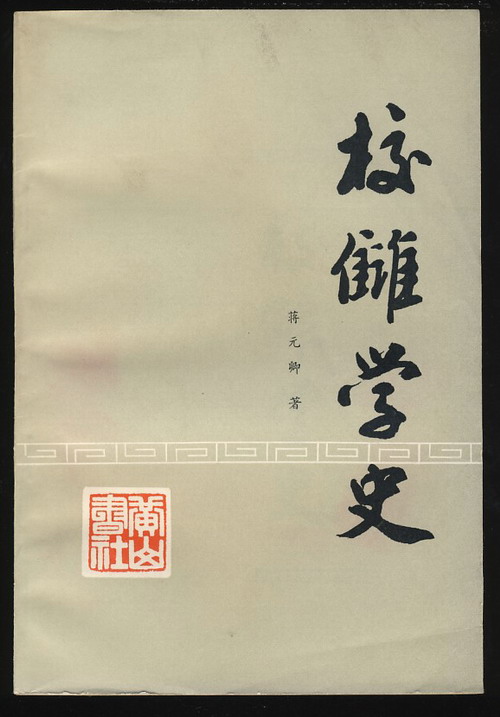 校雠学史
蒋元卿 著
黄山书社